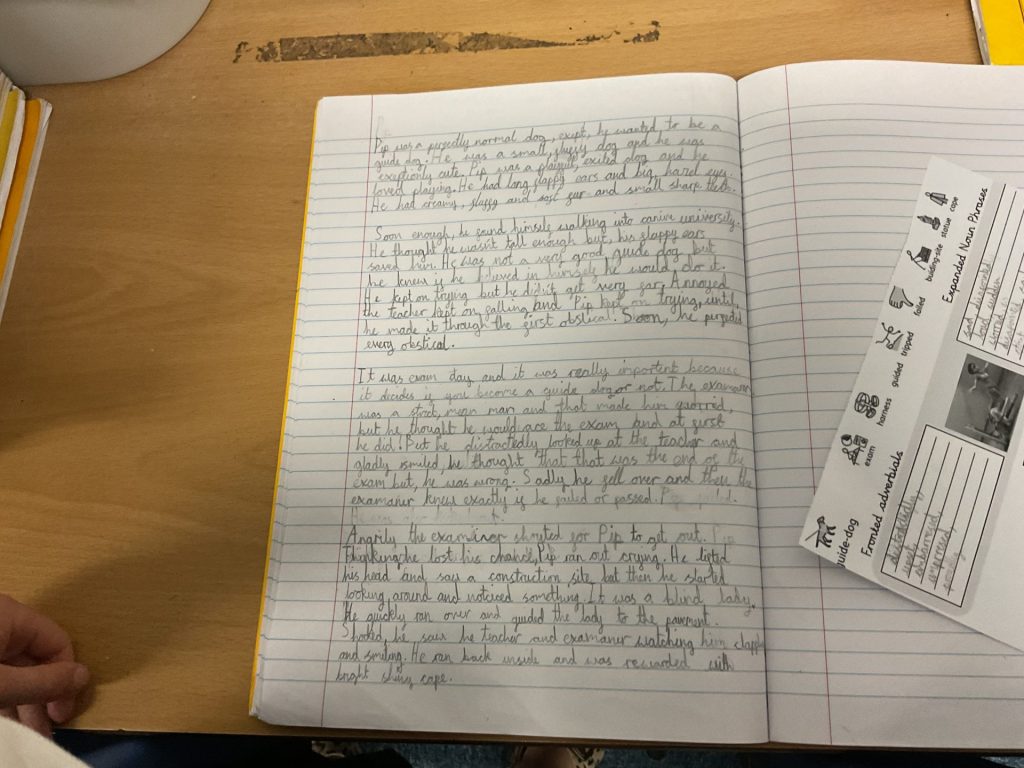 Pip was a purfedly normal dog, exept, he wanted to be a
guide dog. He was a small, fluffy dog and he was
exeptionly cute. Pip was a playfull, exited dog and he
loved playing. He had long, flappy ears and big, hazel eyes.
He had creamy, fluffy and soft fur and small sharp teeth.
Soon enough, he found himself walking into canine university.
He thought he wasn't tall enough but, his flappy ears
saved him. He was not a very good guide dog but
he knew if he beleved in himself he would do it.
He kept on trying but he didn't get very far. Annoyed
the teacher kept on falling and Pip kept on trying, until,
he made it through the first obstical. Soon, he purfeded
every obstical.
It was exam day and it was really importent because
it decides if you become a guide dog or not. The examaner
was a strict, mean man and that made him
but he thought he would ace the exam and at first
he did! But he distractedly looked up at the teacher and
gladly smiled, he thought that that was the end of the
exam but, he was wrong. Sadly he fell over and then the
examaner knew exactly if he failed or passed.
Angrily the examiner shouted for Pip to get out.
Thinking he lost his chance, Pip ran out crying. He lifted
his head and saw a construction site but then he started
looking around and noticed something. It was a blind lady.
He quickly ran over and guided the lady to the pavment.
Shoked, he saw he teacher and examaner watching him clapping
and smiling. He ran back inside and was rewarded with
bright shiny cape.
guide-dog
exam
harness
guided
tripped
failed
building-site
statue
cape
Fronted adverbials
Expanded Noun Phrases